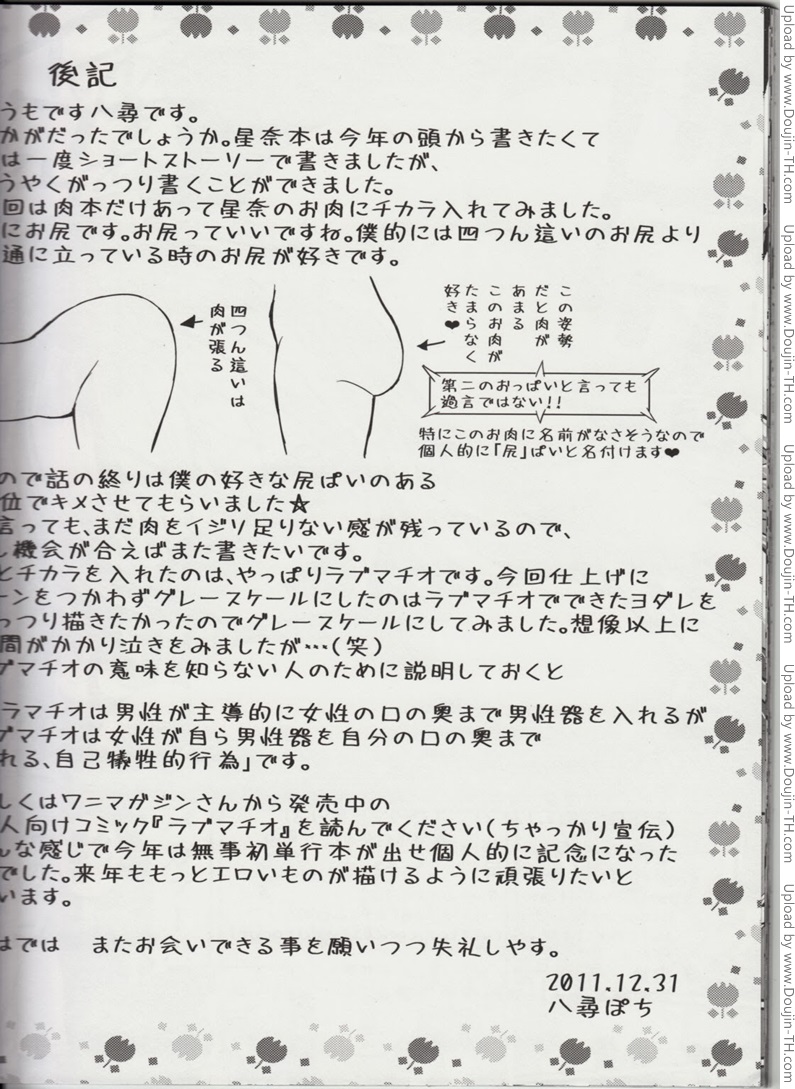 後記
うもです八尋です。
かがだったでしょうか。星奈本は今年の頭から書きたくて
は一度ショートストーリーで書きましたが、
うやくがっつり書くことができました。
回は肉本だけあって星奈のお肉にチカラ入れてみました。
にお尻です。お尻っていいですね。僕的には四つん這いのお尻より
通に立っている時のお尻が好きです。
四つん這いは
肉が張る
この姿勢
だと肉が
あまる
このお肉が
たまらなく
好き♥
第二のおっぱいと言っても
過言ではない!!
特にこのお肉に名前がなさそうなので
個人的に「尻」ぱいと名付けます♥
ので話の終りは僕の好きな尻ぱいのある
位でキメさせてもらいました☆
言っても、まだ肉をイジリ足りない感が残っているので、
し機会が合えばまた書きたいです。
とチカラを入れたのは、やっぱりラブマチオです。今回仕上げに
ーンをつかわずグレースケールにしたのはラブマチオでできたヨダレを
っつり描きたかったのでグレースケールにしてみました。想像以上に
間がかかり泣きをみましたが…(笑)
ブマチオの意味を知らない人のために説明しておくと
ラマチオは男性が主導的に女性の口の奥まで男性器を入れるが
ブマチオは女性が自ら男性器を自分の口の奥まで
れる、自己犠牲的行為」です。
しくはワニマガジンさんから発売中の
人向けコミック『ラブマチオ』を読んでください(ちゃっかり宣伝)
んな感じで今年は無事初単行本が出せ個人的に記念になった
でした。来年ももっとエロいものが描けるように頑張りたいと
います。
はでは　またお会いできる事を願いつつ失礼しやす。
2011.12.31
八尋ぽち
Upload by www.Doujin-TH.com
Upload by www.Doujin-TH.com
Upload by www.Doujin-TH.com
Upload by www.Doujin-TH.com
Upload by www.Doujin-TH.com